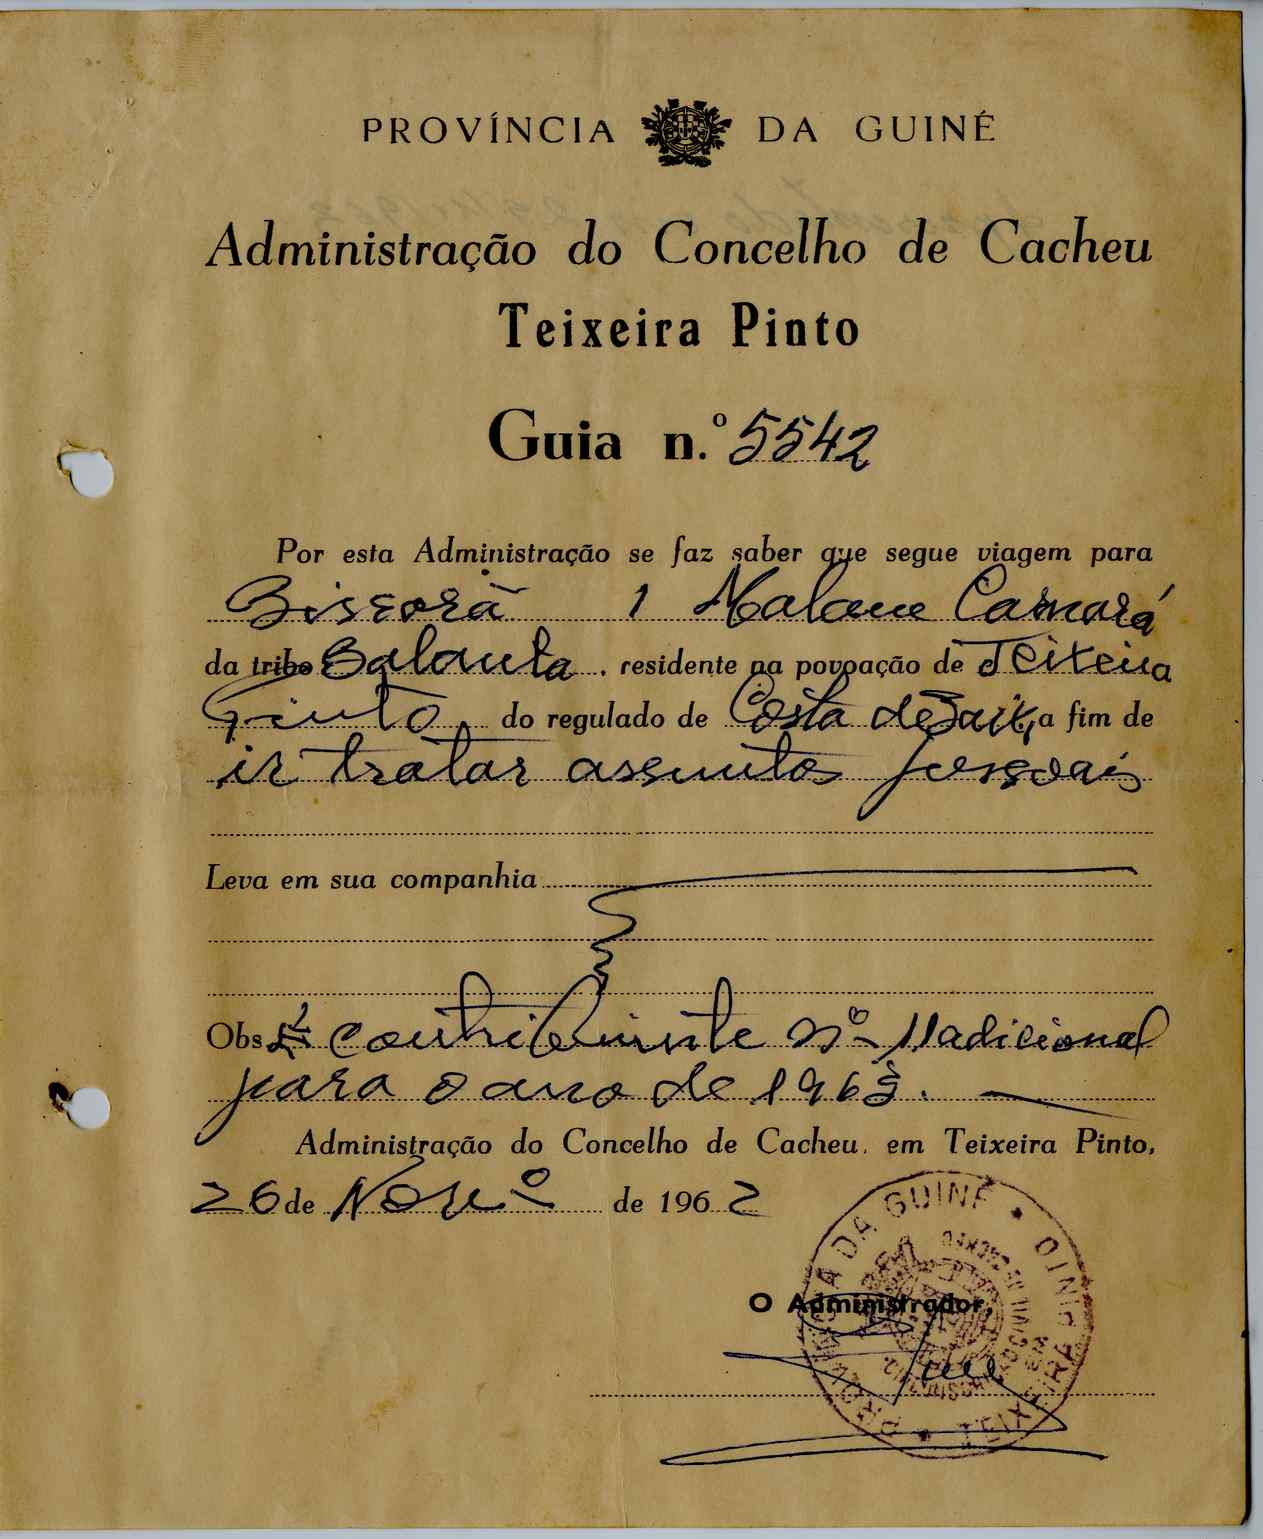 PROVÍNCIA DA GUINÉ
Administração do Concelho de Cacheu
Teixeira Pinto
Guia n.º 5542
Por esta Administração se faz saber que segue viagem para
Bissorã 1 Malam Camará
da tribo Balanta, residente na povoação de Teixeira
Pinto, do regulado de Costa de Baixo, a fim de
ir tratar assuntos pessoais
Leva em sua companhia
Obs É contribuinte nº Adicional
para o ano de 1963.
Administração do Concelho de Cacheu, em Teixeira Pinto,
26 de Novº de 1962
PROVÍNCIA DA GUINÉ • TEIXEIRA PINTO •
O Administrador,